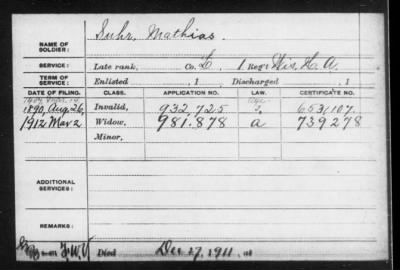 NAME OF SOLDIER: Suhr, Mathias.
SERVICE: Late rank, Co. L, 1 Reg't Wis. H. A.
TERM OF SERVICE: Enlisted , 1 Discharged , 1
DATE OF FILING. CLASS. APPLICATION NO. LAW. CERTIFICATE NO.
1890, Aug 26, Invalid, 932,725 653,107.
1912 Mar 2 Widow, 981.878 a 739278
Minor,
ADDITIONAL SERVICES:
Died Dec 27, 1911.